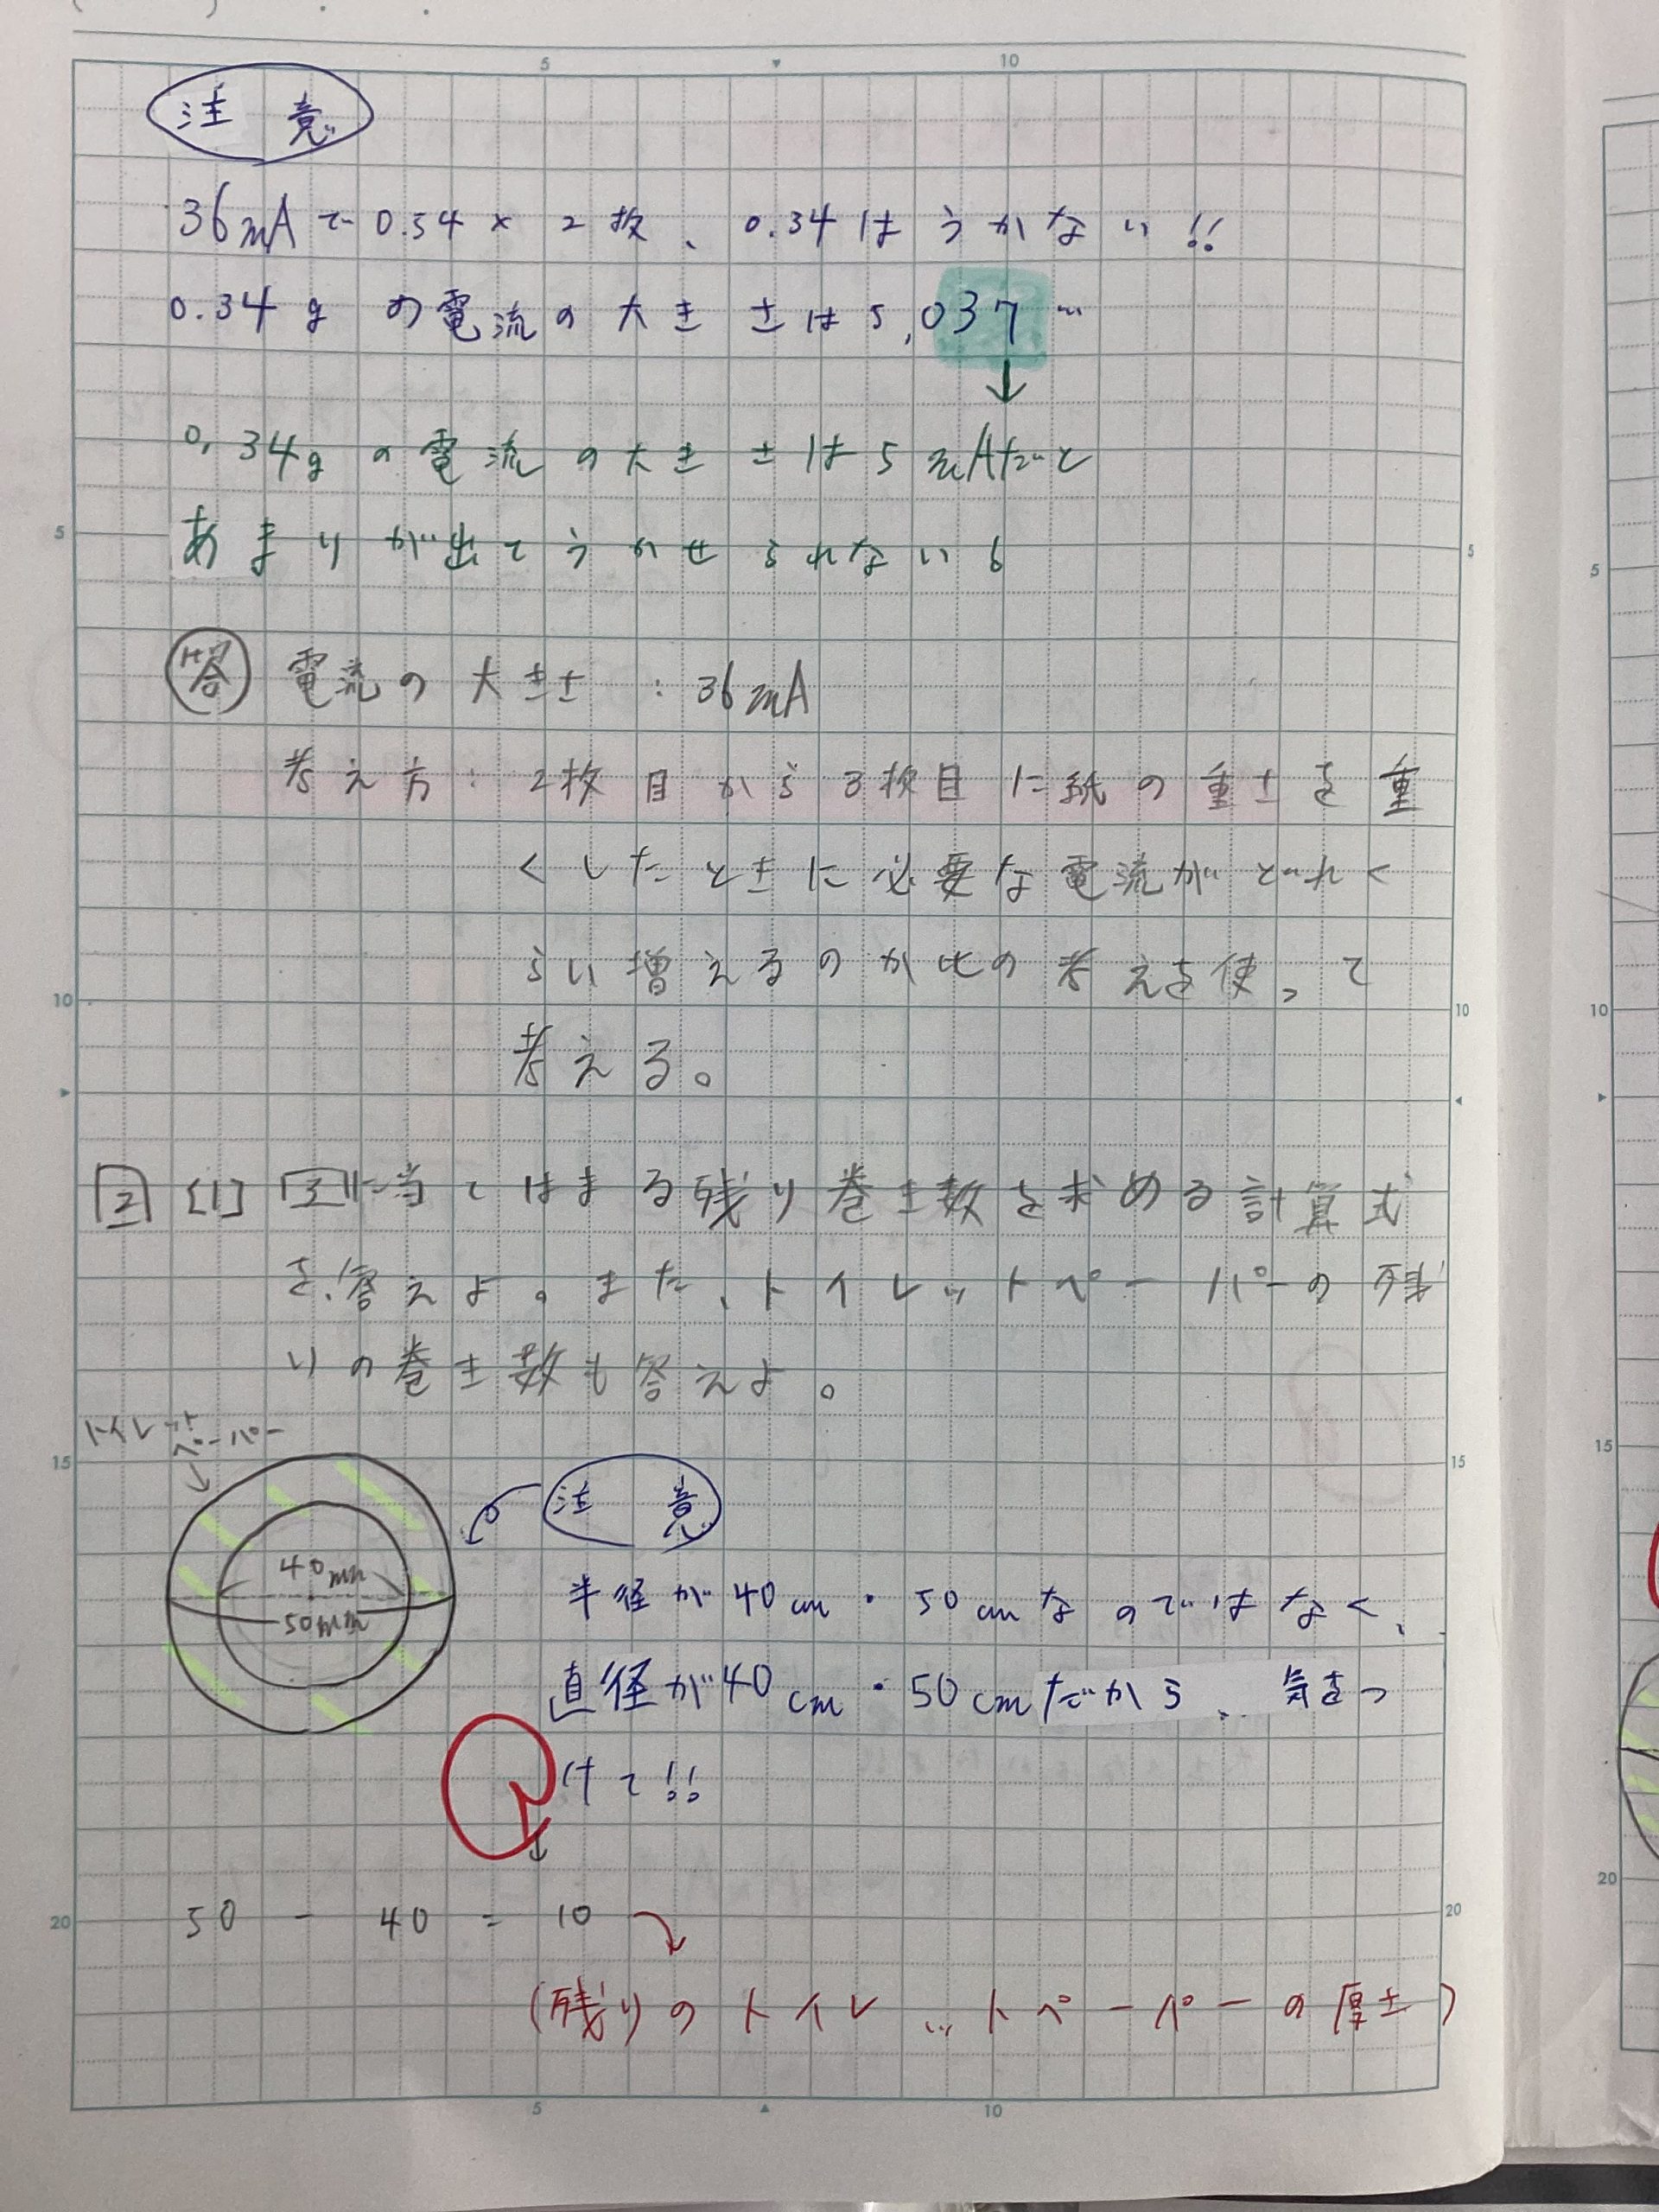 5 10
注意
36mAで0.54×2枚、0.34はうかない!!
0.34gの電流の大きさは5.037…
0.34gの電流の大きさは5mAだと
5 あまりが出てうかせられない 5
答 電流の大きさ：36mA
考え方：2枚目から3枚目に紙の重さを重
くしたときに必要な電流がどれく
10 らい増えるのか比の考えを使って 10
考える。
2 [1] 図に当てはまる残り巻き数を求める計算式
を答えよ。また、トイレットペーパーの残
りの巻き数も答えよ。
トイレット
ペーパー
15 15
注意
40mm
50mm
半径が40cm・50cmなのではなく、
直径が40cm・50cmだから、気をつ
けて!!
20 50 - 40 = 10 20
(残りのトイレットペーパーの厚さ)
5 10
5
10
15
20